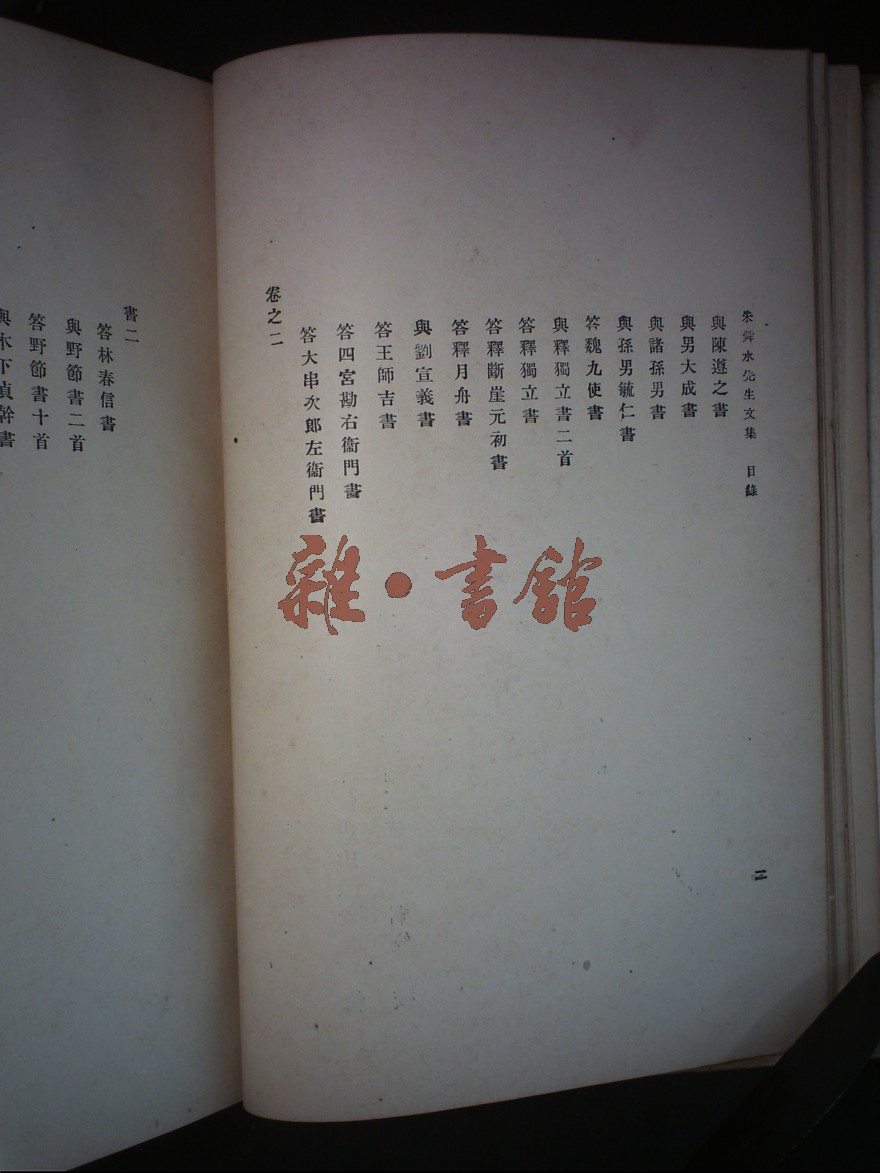 朱舜水先生文集　目錄
與陳遵之書
與男大成書
與諸孫男書
與孫男毓仁書
答魏九使書
與釋獨立書二首
答釋獨立書
答釋斷崖元初書
答釋月舟書
與劉宣義書
答王師吉書
答四宮勘右衞門書
答大串次郎左衞門書
卷之二
二
書二
答林春信書
與野節書二首
答野節書十首
與木下貞幹書
雜・書館